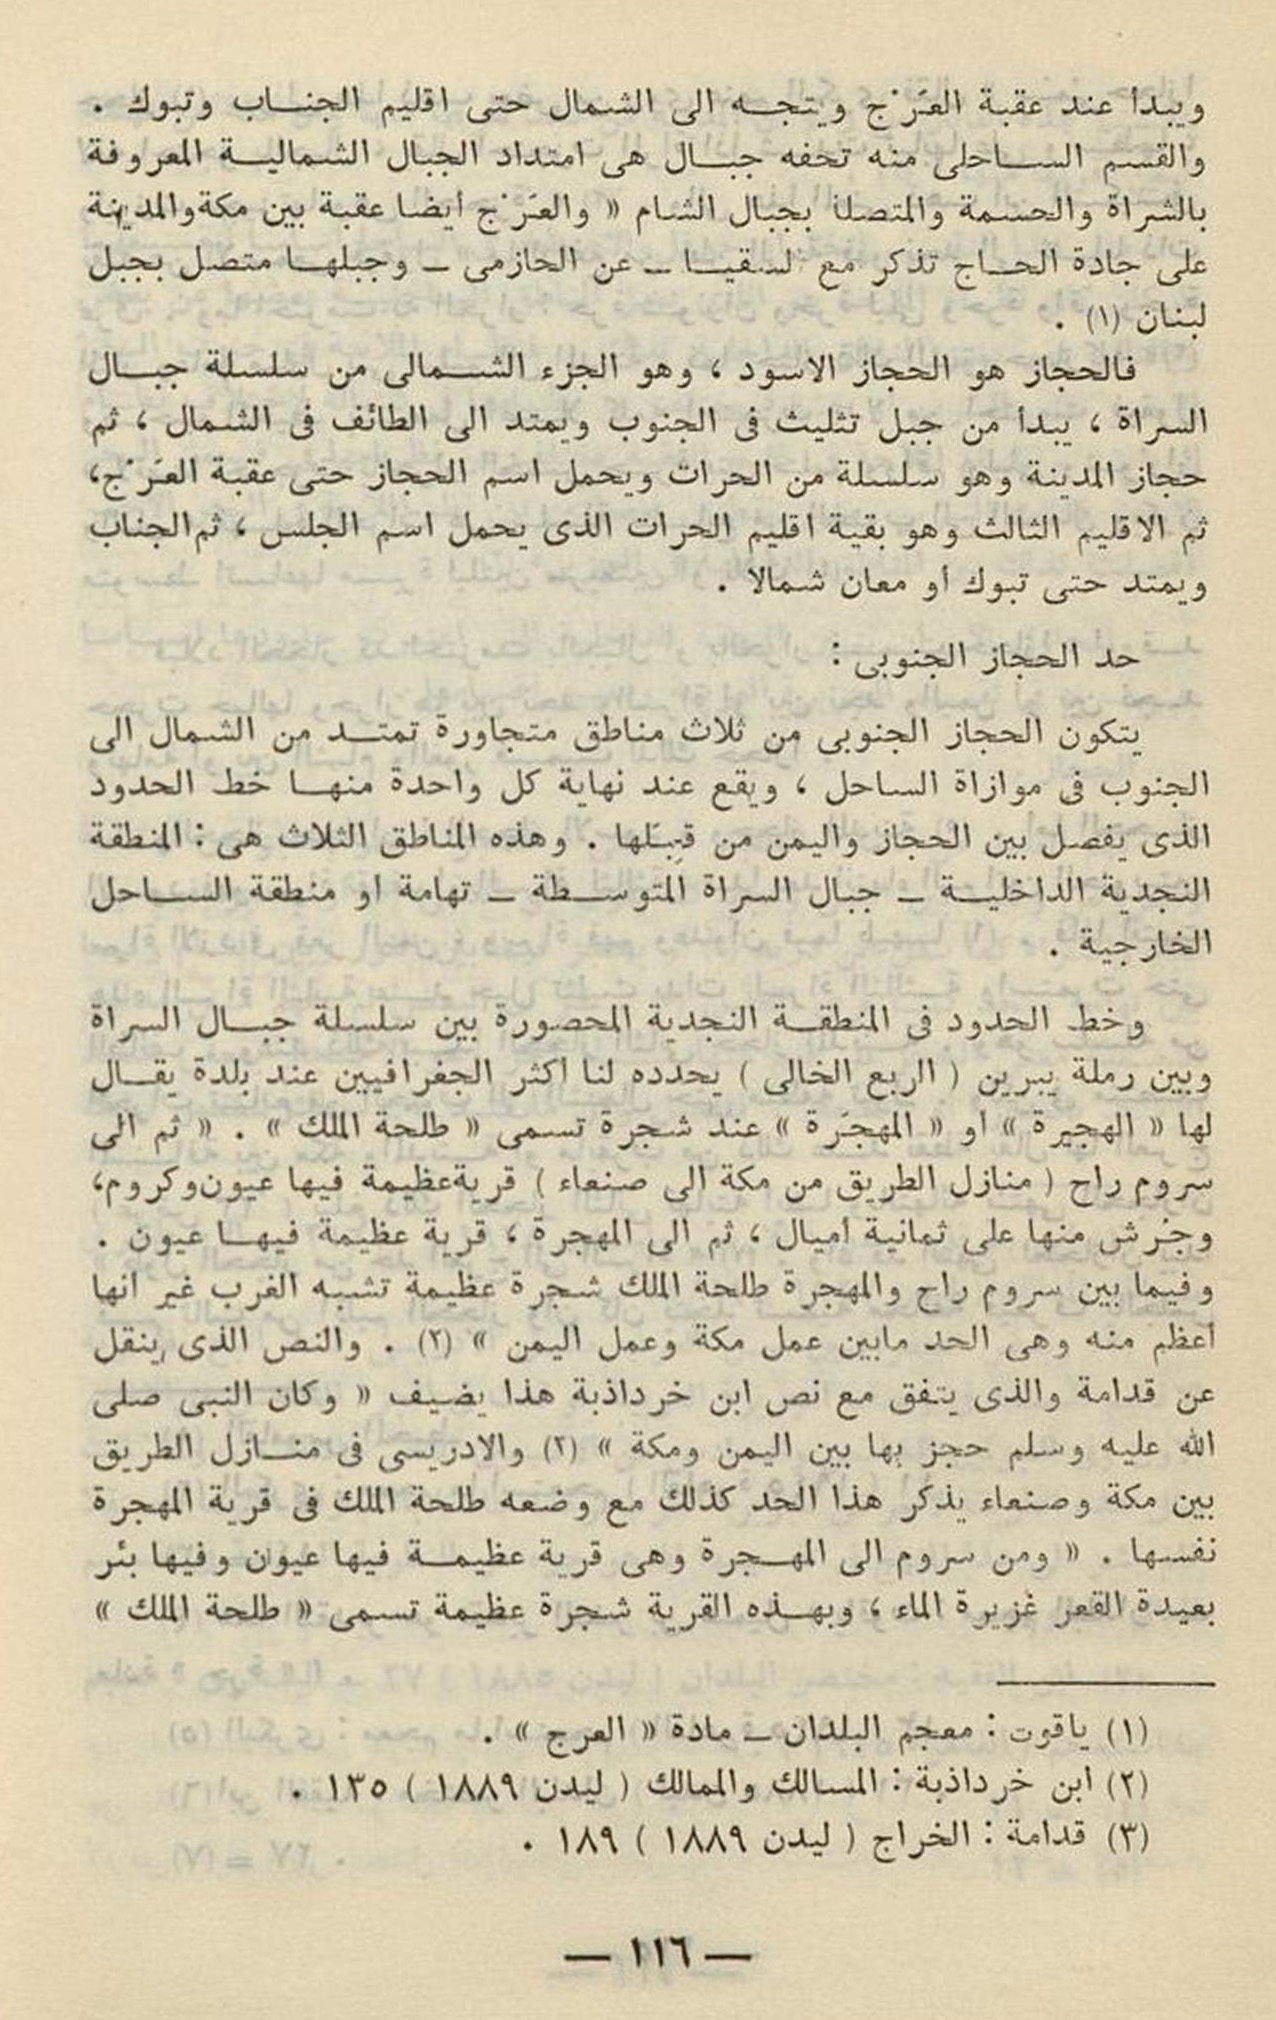 ويبدأ عند عقبة العَرْج ويتجه الى الشمال حتى اقليم الجناب وتبوك .
والقسم الساحلى منه تحفه جبال هى امتداد الجبال الشمالية المعروفة
بالشراة والحسمة والمتصلة بجبال الشام « والعَرْج أيضا عقبة بين مكة والمدينة
على جادة الحاج تذكر مع السقيا – عن الحازمى – وجبلها متصل بجبل
لبنان (١) .
فالحجاز هو الحجاز الاسود ، وهو الجزء الشمالى من سلسلة جبال
السراة ، يبدأ من جبل تثليث فى الجنوب ويمتد الى الطائف فى الشمال ، ثم
حجاز المدينة وهو سلسلة من الحرات ويحمل اسم الحجاز حتى عقبة العَرْج،
ثم الاقليم الثالث وهو بقية اقليم الحرات الذى يحمل اسم الجلس ، ثم الجناب
ويمتد حتى تبوك أو معان شمالا .
حد الحجاز الجنوبى :
يتكون الحجاز الجنوبى من ثلاث مناطق متجاورة تمتد من الشمال الى
الجنوب فى موازاة الساحل ، ويقع عند نهاية كل واحدة منها خط الحدود
الذى يفصل بين الحجاز واليمن من قِبَلها . وهذه المناطق الثلاث هى : المنطقة
النجدية الداخلية – جبال السراة المتوسطة – تهامة أو منطقة الساحل
الخارجية .
وخط الحدود فى المنطقة النجدية المحصورة بين سلسلة جبال السراة
وبين رملة يبرين ( الربع الخالى ) يحدده لنا أكثر الجغرافيين عند بلدة يقال
لها « الهجيرة » أو « المهجَرة » عند شجرة تسمى « طلحة الملك » . « ثم الى
سروم راح ( منازل الطريق من مكة الى صنعاء ) قرية عظيمة فيها عيون وكروم،
وجُرش منها على ثمانية أميال ، ثم الى المهجرة ، قرية عظيمة فيها عيون .
وفيما بين سروم راح والمهجرة طلحة الملك شجرة عظيمة تشبه الغرب غير أنها
أعظم منه وهى الحد مابين عمل مكة وعمل اليمن » (٢) . والنص الذى ينقل
عن قدامة والذى يتفق مع نص ابن خرداذبة هذا يضيف « وكان النبى صلى
الله عليه وسلم حجز بها بين اليمن ومكة » (٢) والادريسى فى منازل الطريق
بين مكة وصنعاء يذكر هذا الحد كذلك مع وضعه طلحة الملك فى قرية المهجرة
نفسها . « ومن سروم الى المهجرة وهى قرية عظيمة فيها عيون وفيها بئر
بعيدة القعر غزيرة الماء ، وبهذه القرية شجرة عظيمة تسمى « طلحة الملك »
(١) ياقوت : معجم البلدان – مادة « العرج » .
(٢) ابن خرداذبة : المسالك والممالك ( ليدن ١٨٨٩ ) ١٣٥ .
(٣) قدامة : الخراج ( ليدن ١٨٨٩ ) ١٨٩ .
— ١١٦ —